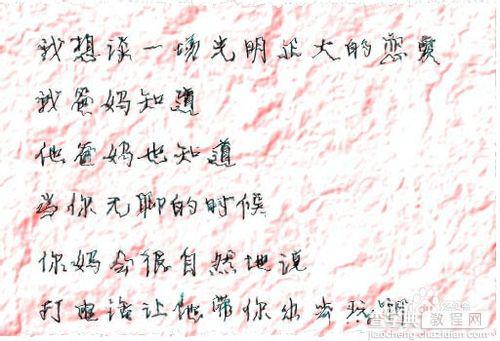 我想谈一场光明正大的恋爱
我爸妈知道
他爸妈也知道
当你无聊的时候
你妈会很自然地说
打电话让他带你出去玩啊
教程网
jiaocheng.chazidian.com